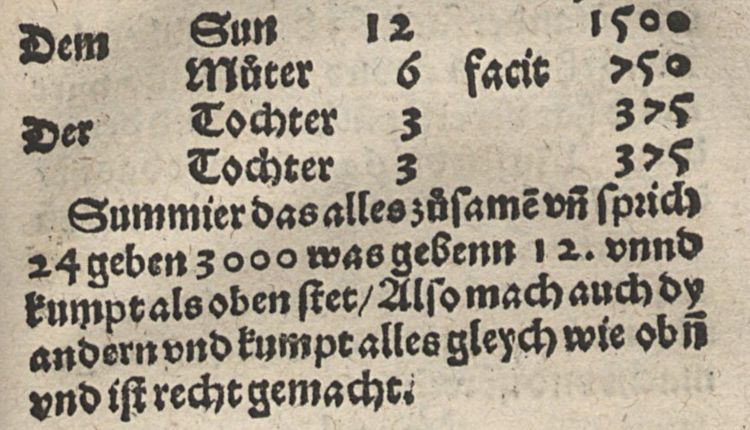 Dem Sun 12 1500
Můter 6 facit 750
Der Tochter 3 375
Tochter 3 375
Summier das alles zůsamē vn̄ sprich
24 geben 3000 was gebenn 12. vnnd
kumpt als oben stet/ Also mach auch dy
andern vnd kumpt alles gleych wie obn̄
vnd ist recht gemacht.